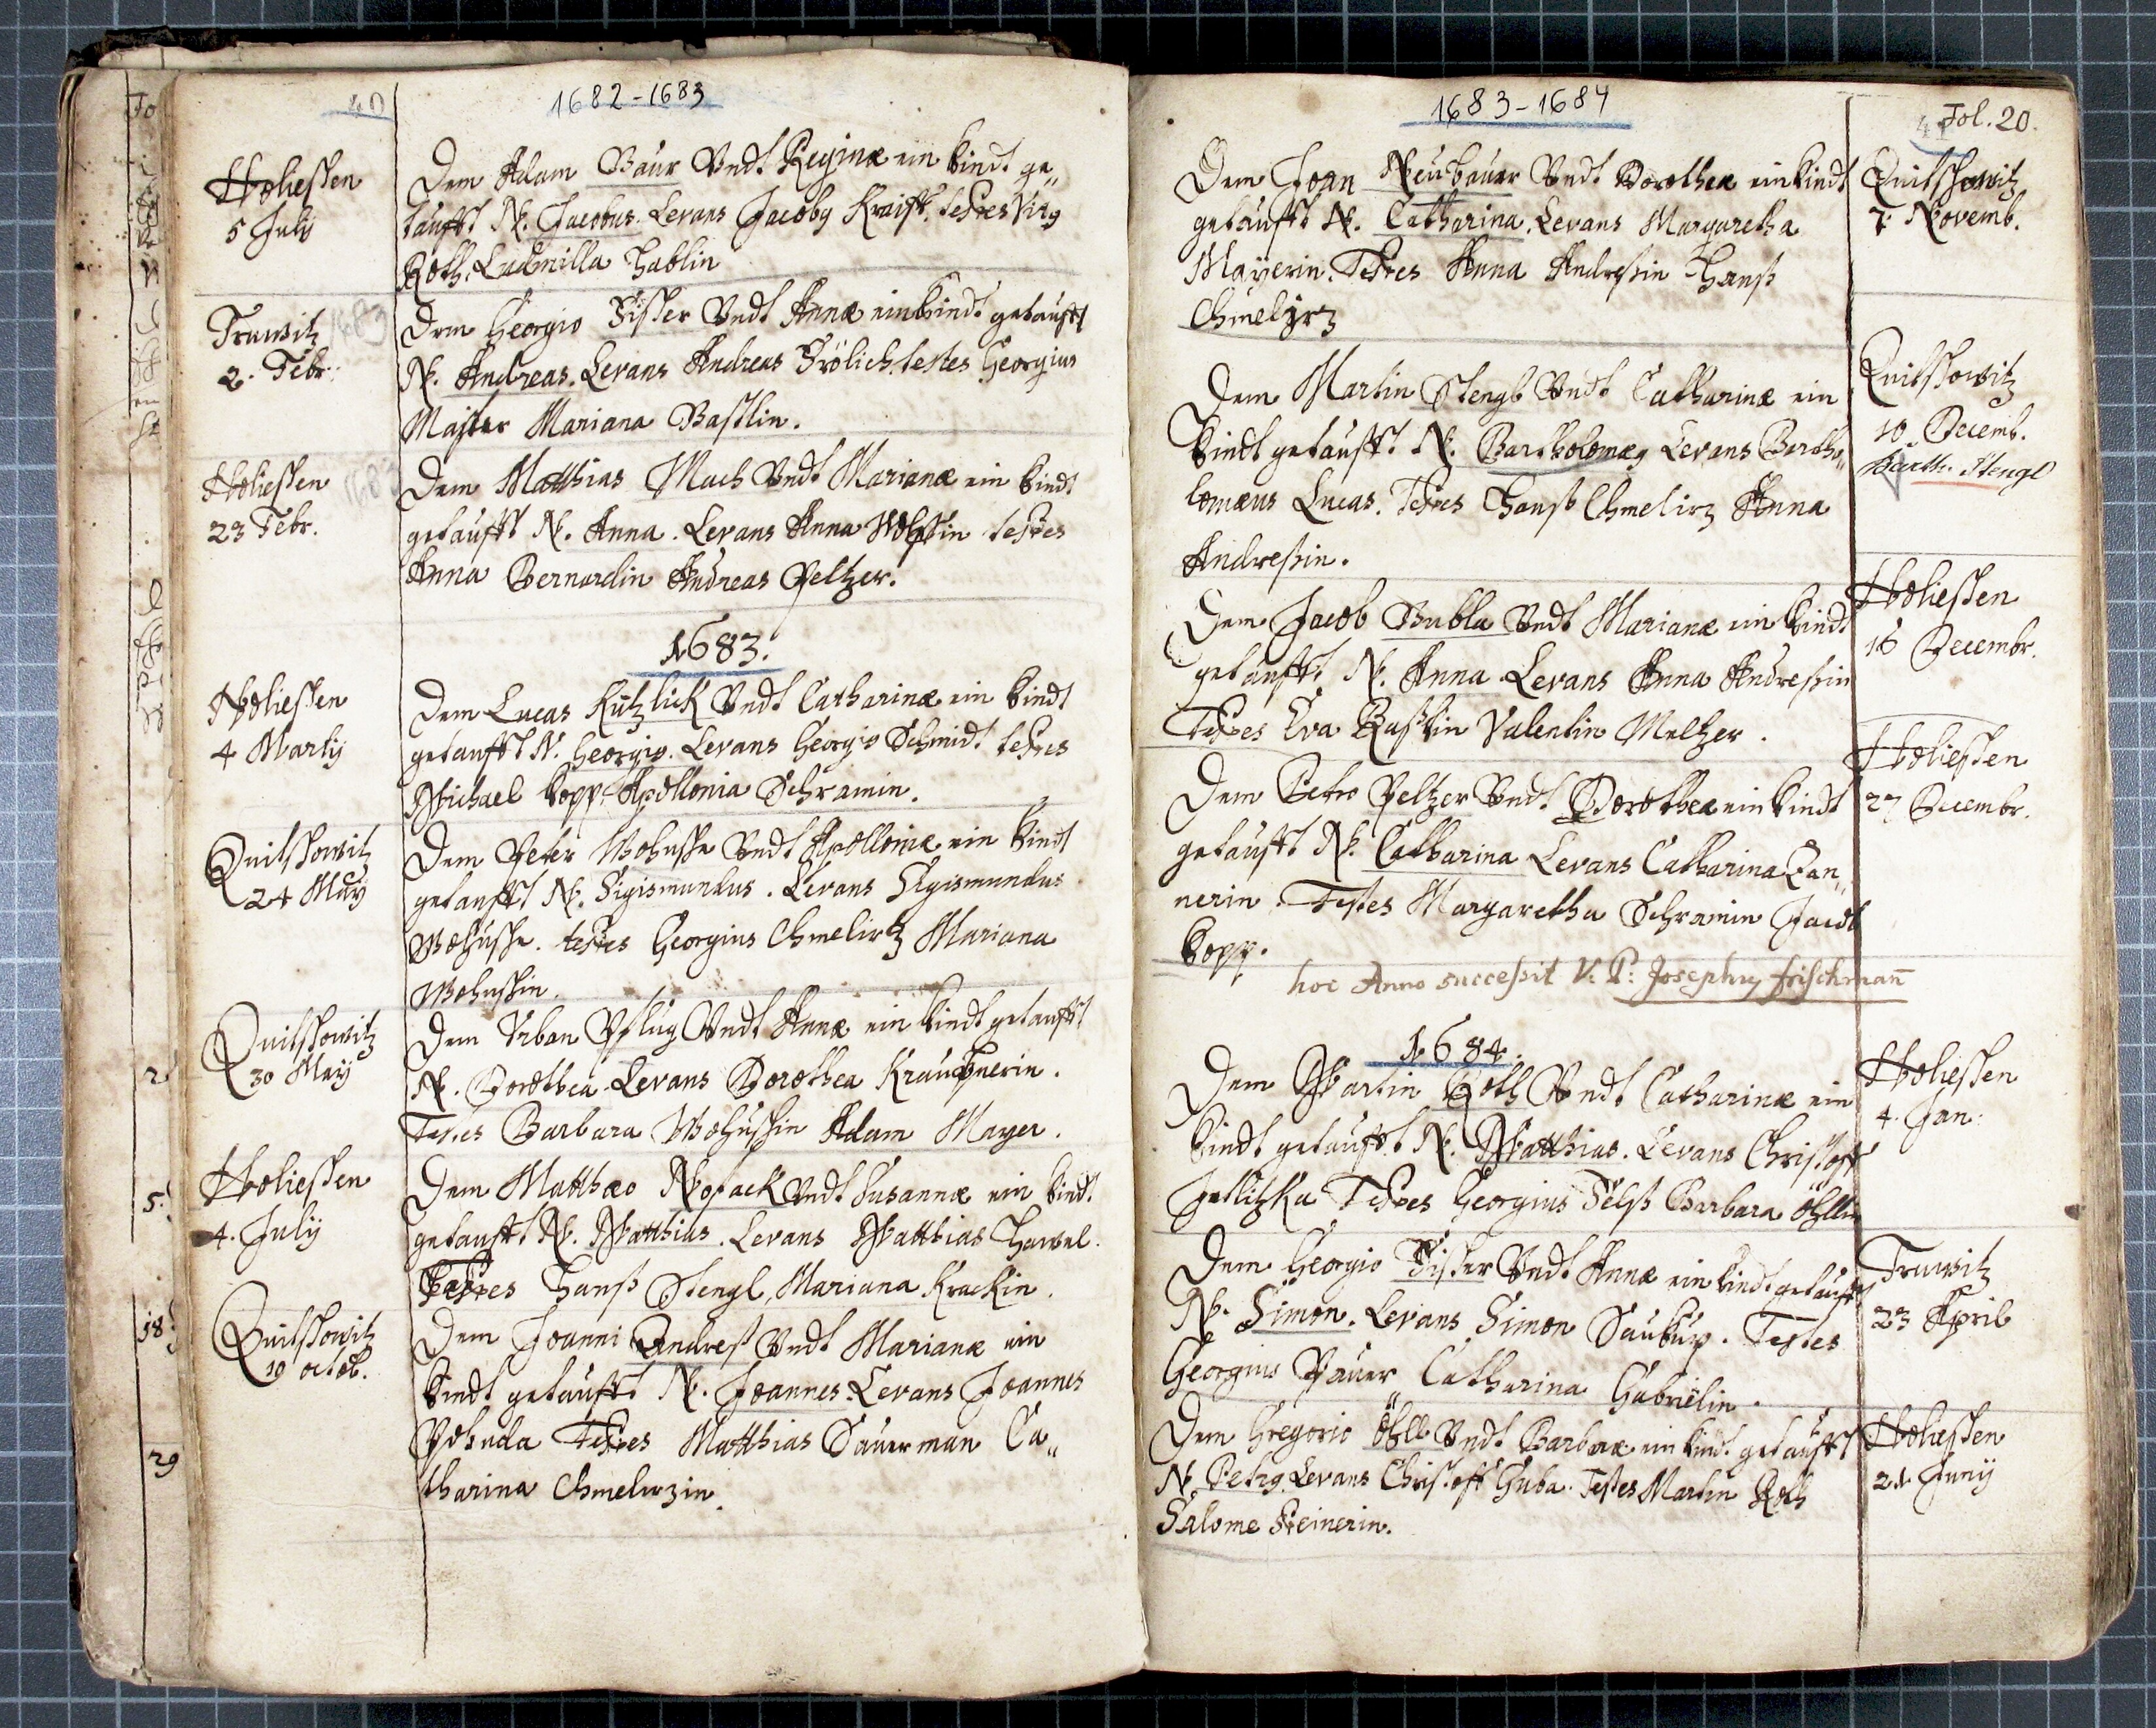 40
1682-1683
Holiessen
5 July
Dem Adam Baur Vndt Reginæ ein kindt ge„
taufft N. Jacobus. Levans Jacoby Kraift. testes Vitg
Roth. Ludmilla Hablin
Truwitz
2. Febr:
1683
Dem Georgio Fisser Vndt Annæ ein kindt getaufft
N. Andreas. Levans Andreas Frölich. testes Georgius
Majter Mariana Bastlin.
Holiessen
23 Febr.
1683
Dem Matthias Mach Vndt Marianæ ein kindt
getaufft N. Anna. Levans Anna testes
Anna Bernardin Andreas Peltzer.
1683.
Holiessen
4 Martij
Dem Lucas Kützlick Vndt Catharinæ ein kindt
getaufft N. Georgio. Levans Georgio Schmidt testes
Michael kopp. Apollonia Schramin.
Quitshowitz
24 May
Dem Peter Wohusse Vndt Apolloniæ ein kindt
getaufft N. Sigismundus. Levans Sigismundus
Wohusse. testes Georgius Chmelirtz Mariana
Wohussin.
Quitshowitz
30 May
Dem Vrban Pflug Vndt Annæ ein kindt getaufft
N. Dorothea Levans Dorothea
Testes Barbara Wohussin Adam Mayer.
Holiessen
4. July
Dem Matthæo Nopack Vndt Susannæ ein kindt
getaufft N. Matthias. Levans Matthias Hawel.
Testes Hanß Stengl, Mariana Krackin.
Quitshowitz
19 octob.
Dem Joanni Andreß Vndt Marianæ ein
kindt getaufft N. Joannes. Levans Joannes
Pohuda Testes Matthias Sauerman Ca„
tharina Chmelirzin.
1683-1684
Fol. 20.
Dem Joan Neubauer Vndt Dorotheæ ein kindt
getaufft N. Catharina. Levans Margaretha
Mayerin. Testes Anna Andreßin Hanß
Chmelirz
Quitshowitz
7. Novemb.
Dem Martin Stengl Vndt Catharinæ ein
kindt getaufft N. Bartholomæg Levans Bartho„
lomæus Lucas. Testes Hanß Chmelirz Anna
Andreßin.
Quitshowitz
10. Decemb.
Barth. Stengl
Dem Jacob Bubla Vndt Marianæ ein kindt
getaufft N. Anna. Levans Anna Andreßin
Testes Eva Rastlin Valentin Meltzer.
Holiessen
16 Decembr.
Dem Petro Peltzer Vndt Dorotheæ ein kindt
getaufft N. Catharina Levans Catharina Zan„
nerin. Testes Margaretha Schramin Jacob
kopp.
Holiessen
27 Decembr.
hoc Anno succeßit V. P: Josephus frischmañ
1684.
Dem Martin Roth Vndt Catharinæ ein
kindt getaufft N. Matthias. Levans Christoff
Jetlitzka Testes Georgius Felß Barbara Öhllin
Holiessen
4. Jan:
Dem Georgio Fisser Vndt Annæ ein kindt getaufft
N. Simon. Levans Simon Testes
Georgius Pauer Catharina Gabrielin.
Truwitz
23 April
Dem Gregorio Öhll Vndt Barbaræ ein kindt getaufft
N. Petrg. Levans Christoff Huba. Testes Martin Roth
Salome Steinerin.
Holiessen
21. Junij
2
5.
18
29